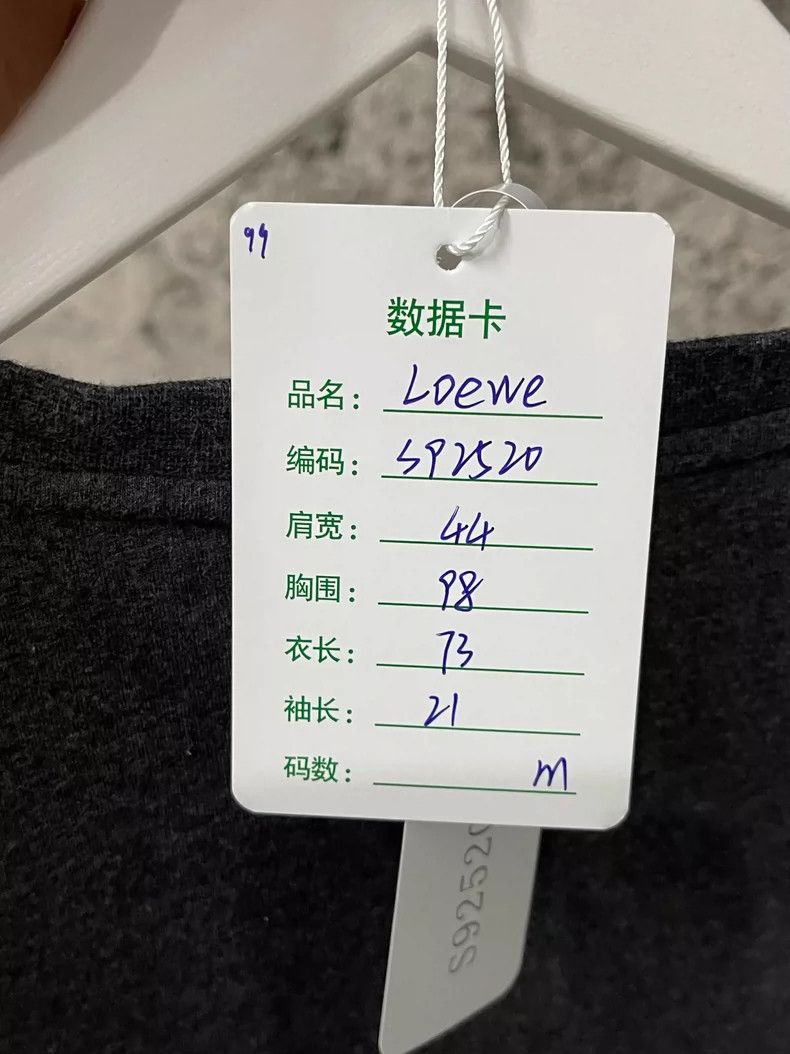 99
数据卡
品名: Loewe
编码: S92520
肩宽: 44
胸围: 98
衣长: 73
袖长: 21
码数: m
S92520